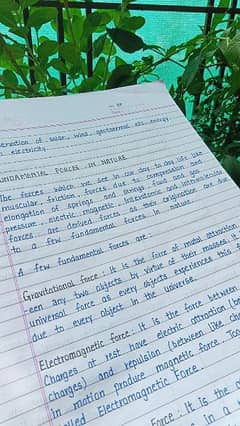 ervation of solar, wind, geothermal etc. energy
electricity.
UNDAMENTAL FORCES IN NATURE
The forces which we see in our day to day life like
muscular, friction, forces due to compression and
elongation of springs and strings, fluid and gas
pressure, electric, magnetic, interatomic and intermolecular
forces are derived forces as their originations are due
to a few fundamental forces in nature.
A few fundamental forces are:
Gravitational force: It is the force of mutual attraction
een any two objects by virtue of their masses. It
universal force as every objects experiences this
due to every object in the universe.
Electromagnetic force: It is the force between
Charges at rest have electric attraction (bet
charges) and repulsion (between like char
in motion produce magnetic force. Toge
lled Electromagnetic Force.
Force: It is the